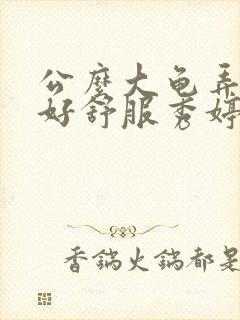 公麽大龟弄
好舒服秀婷
香锅火锅都是